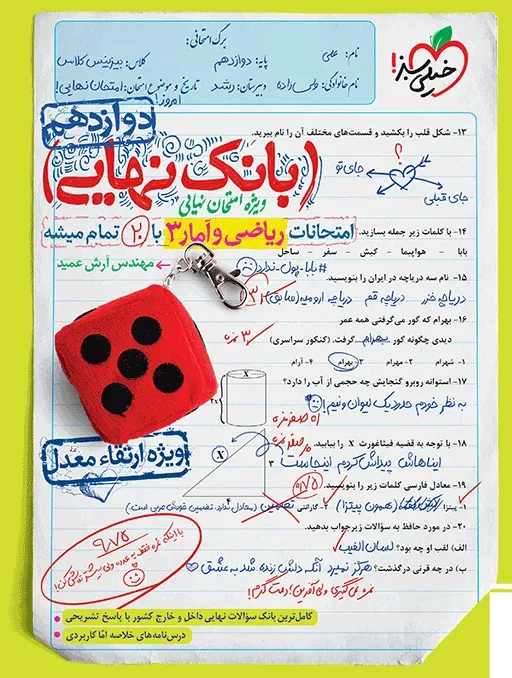 برگ امتحانی:
خیلی سبز!
نام: علی
پایه: دوازدهم
کلاس: بیزینس کلاس
نام خانوادگی:
دبیرستان: رشد
تاریخ و موضوع امتحان: امتحان نهایی!
امروز!
دوازدهم
(بانک نهایی)
ویژه امتحان نهایی
امتحانات ریاضی و آمار ۳ با ۲۰ تمام میشه
مهندس آرش عمید
۱۳- شکل قلب را بکشید و قسمت‌های مختلف آن را نام ببرید.
؟
جای تو
جای قبلی
۱۴- با کلمات زیر جمله بسازید.
بابا - هواپیما - کیش - سفر - ساحل
#بابا-پول-ندارد
۱۵- نام سه دریاچه در ایران را بنویسید.
دریاچه خزر دریاچه قم دریاچه ارومیه (سابق)
۱۶- بهرام که گور می‌گرفتی همه عمر
دیدی چگونه گور بهرام گرفت. (کنکور سراسری)
۱- شهرام ۲- مهرام ۳- بهرام ۴- آرام
۱۷- استوانه روبرو گنجایش چه حجمی از آب را دارد؟
به نظر خودم حدود یک لیوان و نیم!
۱۸- با توجه به قضیه فیثاغورث X را بیابید.
X
۳
۴
ایناهاش پیداش کردم اینجاست
ویژه ارتقاء معدل
۱۹- معادل فارسی کلمات زیر را بنویسید.
۱- پیتزا (همون پیتزا) ۲- گارانتی تضمین (معادل ندارد. تضمین خودش عربی است.)
۲۰- در مورد حافظ به سؤالات زیر جواب بدهید.
الف) لقب او چه بود؟ لسان الغیب
ب) در چه قرنی درگذشت؟ هرگز نمیرد آنکه دلش زنده شد به عشق
نمره نمی‌گیری ولی آفرین! دمت گرم!
۹/۷۵
کامل‌ترین بانک سؤالات نهایی داخل و خارج کشور با پاسخ تشریحی
درس‌نامه‌های خلاصه امّا کاربردی